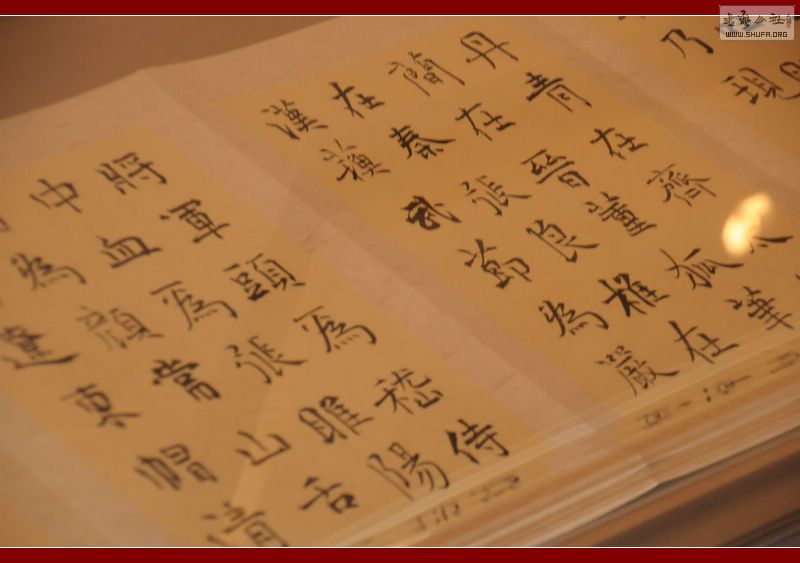 書藝公社
WWW.SHUFA.ORG
乃現
丹青在齊太
簡在晉董狐筆
在秦張良椎在
漢蘓武節為嚴
將軍頭為嵇侍
中血為張睢陽
為顏嘗山舌
遼東帽清